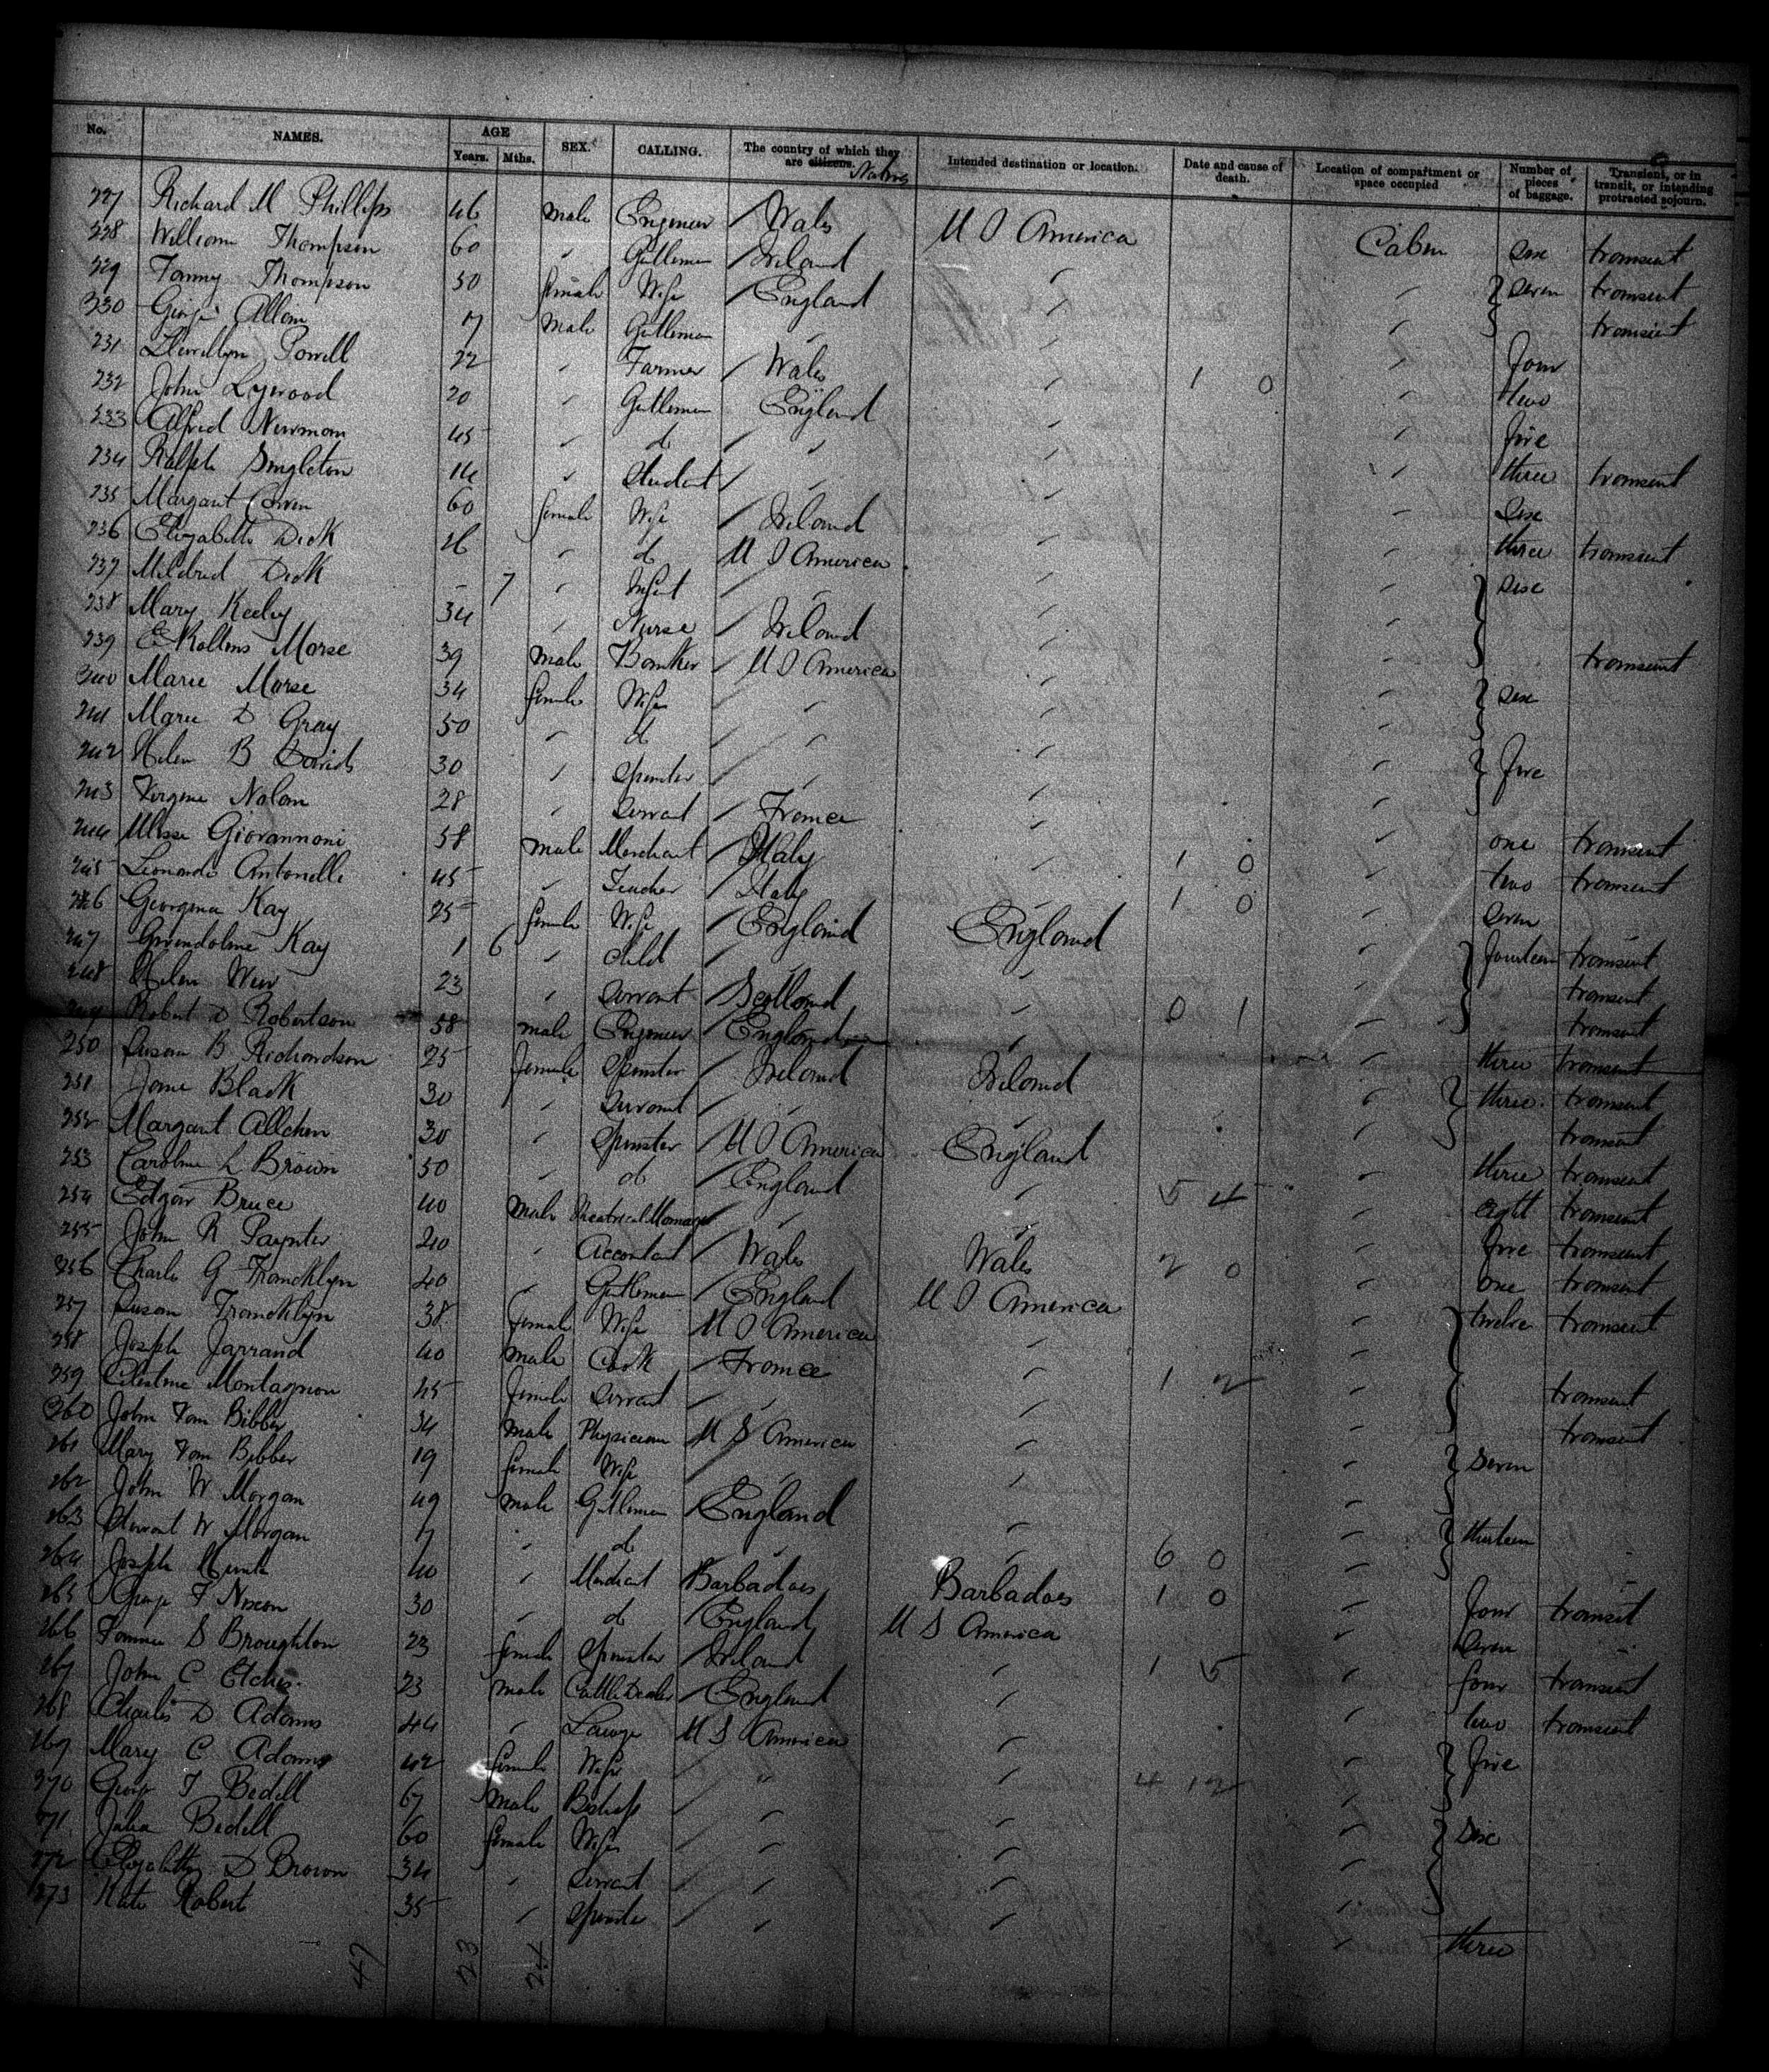 No. NAMES. AGE Years. Mths. SEX. CALLING. The country of which they are citizens. Natives Intended destination or location. Date and cause of death. Location of compartment or space occupied Number of pieces of baggage. Transient, or in transit, or intending protracted sojourn.
227 Richard M Phillips 46 male Engineer / Wales U S America Cabin Six transient
228 William Thompson 60 " Gentleman / Ireland " " } Seven transient
229 Fanny Thompson 50 female Wife / England " " transient
230 George Allom 17 male Gentleman / " " " Four
231 Llewellyn Powell 22 " Farmer / Wales " 1 0 " two
232 John Lywood 20 " Gentleman England " " five
233 Alfred Newmom 45 " do / " " " three transient
234 Ralph Singleton 14 " Student / " " " Six
235 Margaret Cowen 60 female Wife / Ireland " " three transient
236 Elizabeth Dick 26 " do U S America " " } Six
237 Mildred Dick - 7 " Infant " "
238 Mary Keeley 34 " Nurse / Ireland " " transient
239 E Rollins Morse 39 male Banker / U S America " " } Six
240 Marie Morse 34 female Wife / " " "
241 Marie D Gray 50 " do / " " " } five
242 Helen B 30 " Spinster / " " "
243 Virginie Nolan 28 " Servant / France " " one transient
244 Ulisse Giovannoni 58 male Merchant / Italy " 1 0 " two transient
245 Leonardo Antonelli 45 " Teacher / Italy " 1 0 " Seven
246 Georgina Kay 25 female Wife / England England " } fourteen transient
247 Gwendoline Kay 1 6 " child / " " " transient
248 Helen Weir 23 " Servant / Scotland " 0 1 " transient
249 Robert D Robertson 58 male Engineer / England " " three transient
250 Susan B Richardson 25 female Spinster / Ireland Ireland " } three transient
251 Jane Black 30 " Servant / " " " transient
252 Margaret Allchin 30 " Spinster / U S America England " three transient
253 Caroline L Brown 50 " do / England " 5 4 " eight transient
254 Edgar Bruce 40 male Theatrical Manager / " " " five transient
255 John R Paynter 20 " Accountant / Wales Wales 2 0 " one transient
256 Charles G Francklyn 40 " Gentleman / England U S America " } twelve transient
257 Susan Francklyn 38 female Wife U S America " "
258 Joseph Jarrand 40 male Cook / France " 1 2 " transient
259 Celestine Montagnon 45 female Servant / " " " transient
260 John Van Bibber 34 male Physician U S America " " } Seven
261 Mary Van Bibber 19 female Wife / " " "
262 John W Morgan 49 male Gentleman / England " " } thirteen
263 Stewart W Morgan 17 " do / " " 6 0 "
264 Joseph 40 " Merchant Barbadoes Barbadoes 1 0 " four transit
265 George F Nixon 30 " do / England U S America " Seven
266 Fannie S Broughton 23 female Spinster / Ireland " 1 5 " four transient
267 John C Etches 23 male Cattle Dealer / England " " two transient
268 Charles D Adams 44 " Lawyer U S America " " } five
269 Mary C Adams 42 female Wife / " " 4 12 "
270 George T Bedell 67 male Bishop / " " " } Six
271 Julia Bedell 60 female Wife / " " "
272 Elizabeth D Brown 34 " Servant / " " "
273 Kate Robert 35 " Spinster / " " " three
47 23 24